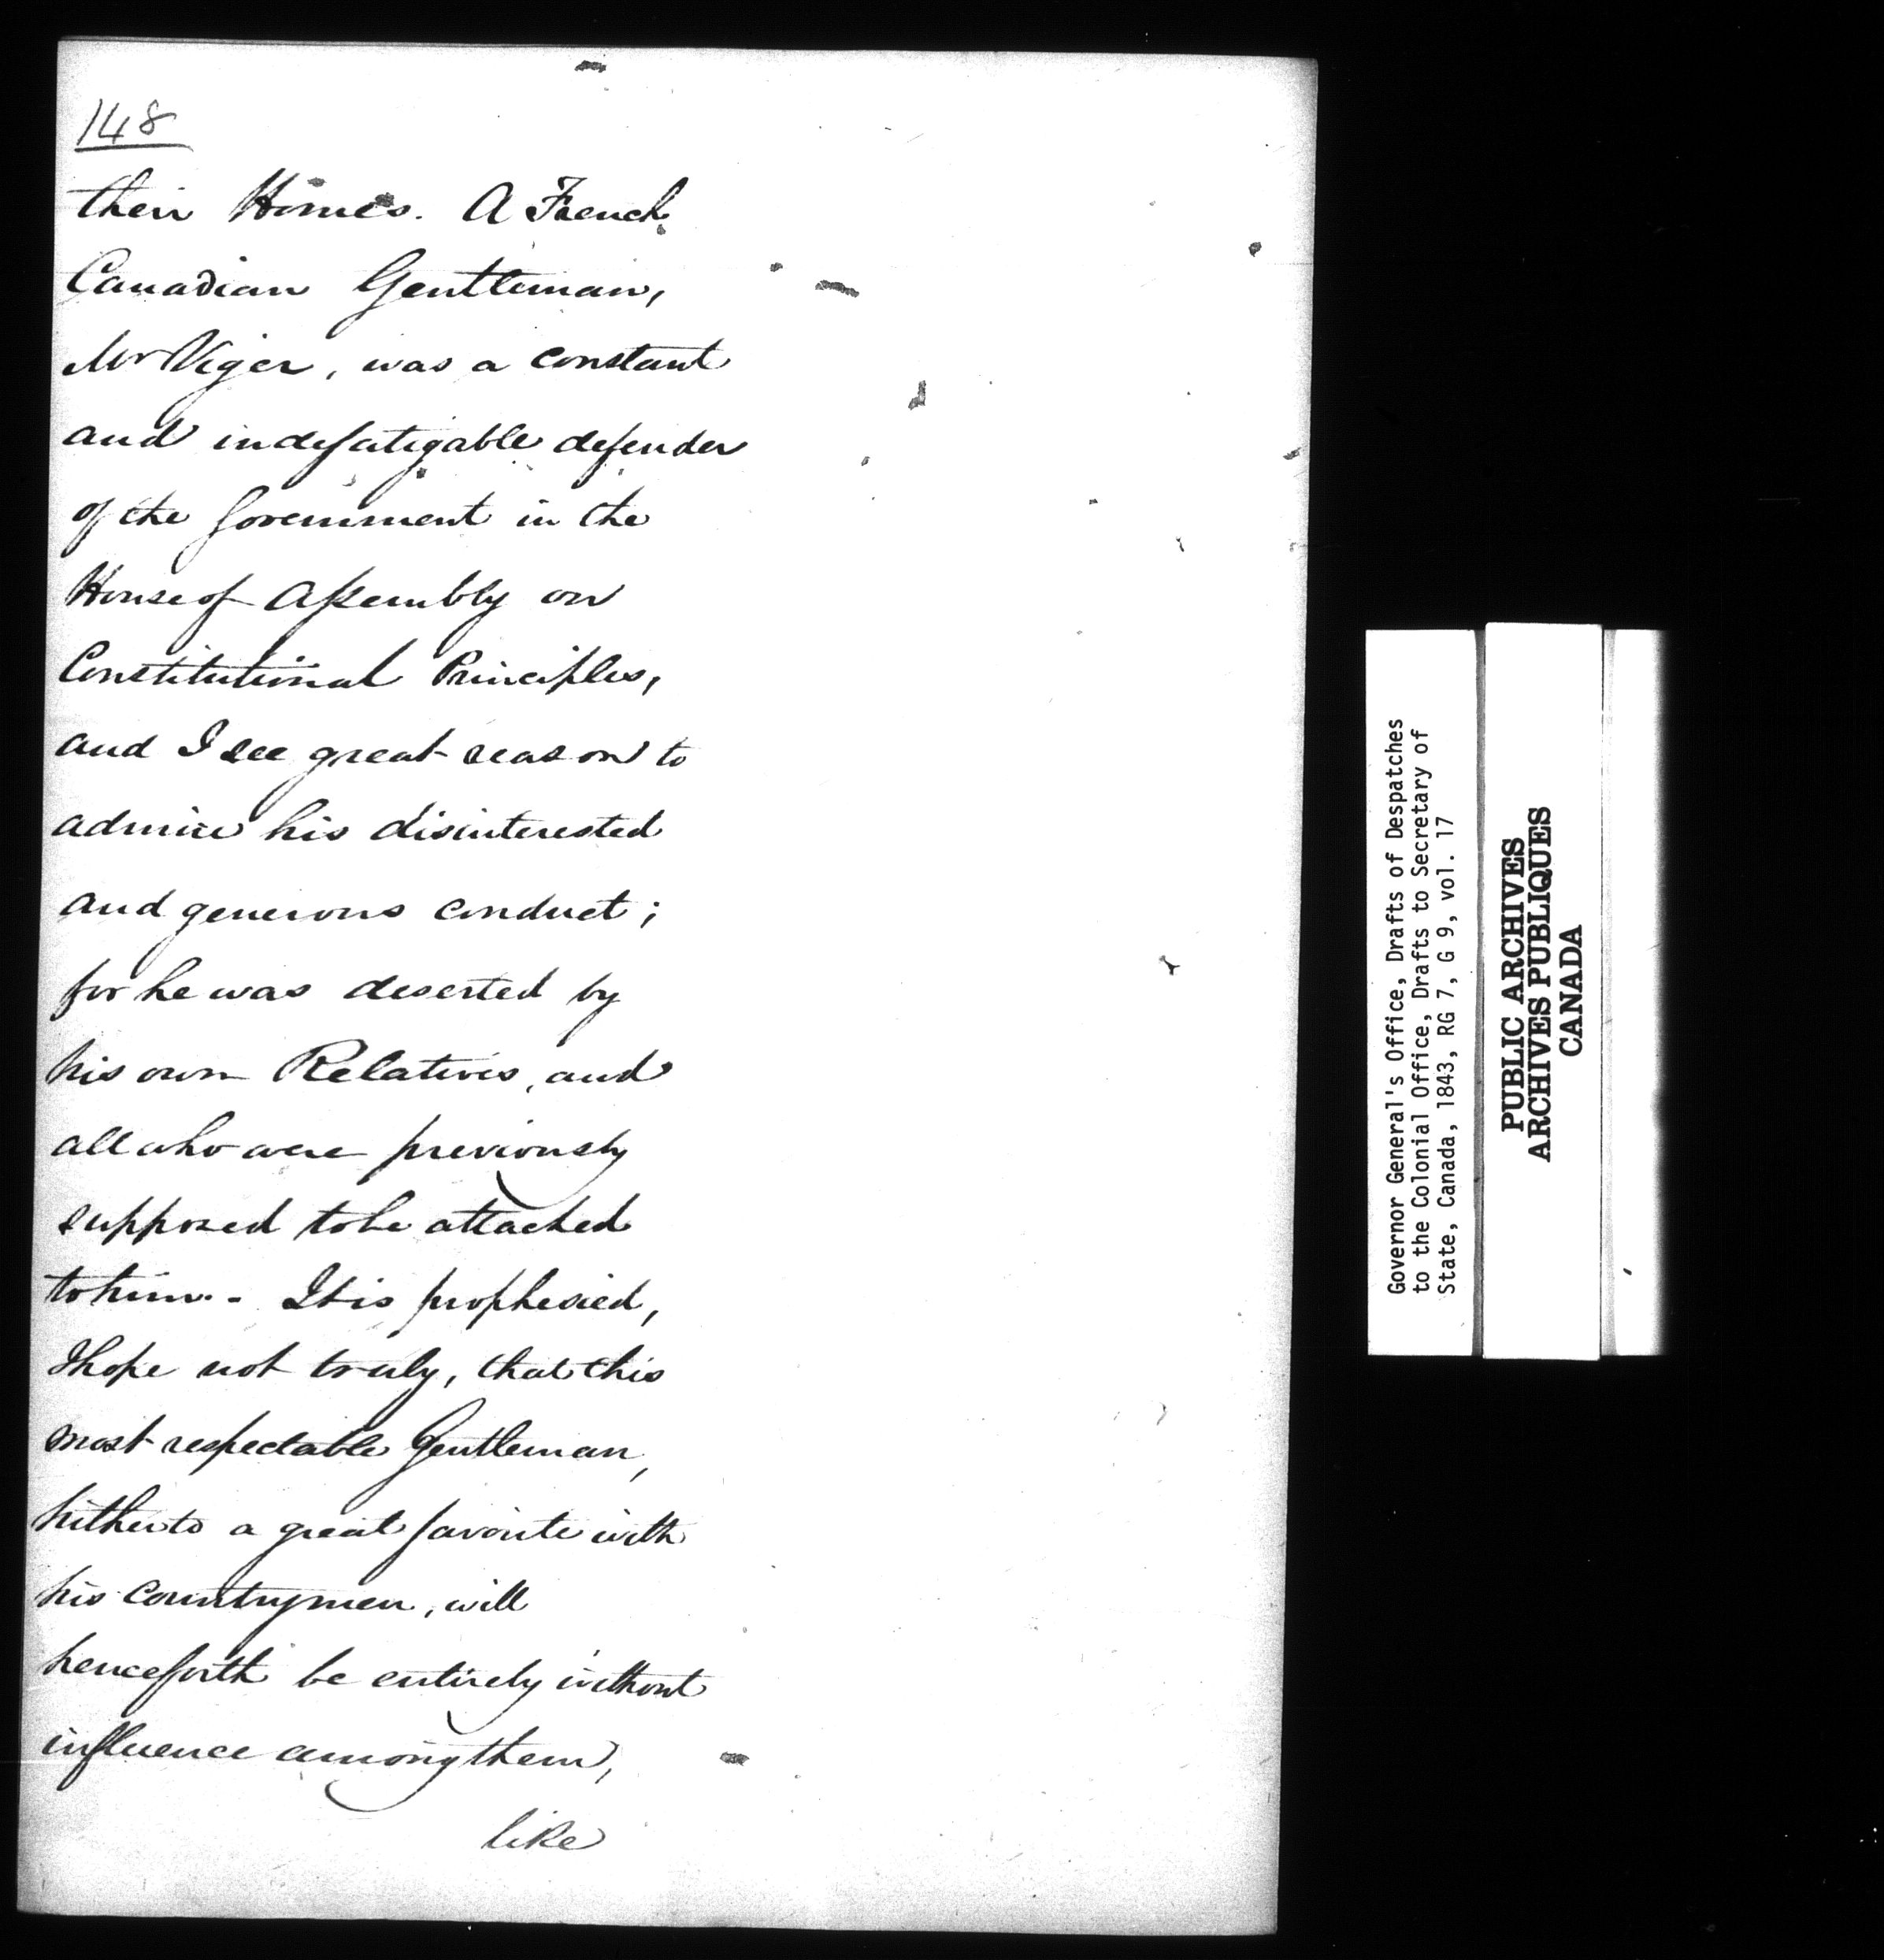 148
their Homes. A French
Canadian Gentleman,
Mr Viger, was a constant
and indefatigable defender
of the Government in the
House of Assembly on
Constitutional Principles,
and I see great reason to
admire his disinterested
and generous conduct;
for he was deserted by
his own Relatives, and
all who were previously
supposed to be attached
to him. - It is prophesied,
I hope not truly, that this
most respectable Gentleman,
hitherto a great favorite with
his countrymen, will
henceforth be entirely without
influence among them,
like
Governor General's Office, Drafts of Despatches
to the Colonial Office, Drafts to Secretary of
State, Canada, 1843, RG 7, G 9, vol. 17
PUBLIC ARCHIVES
ARCHIVES PUBLIQUES
CANADA